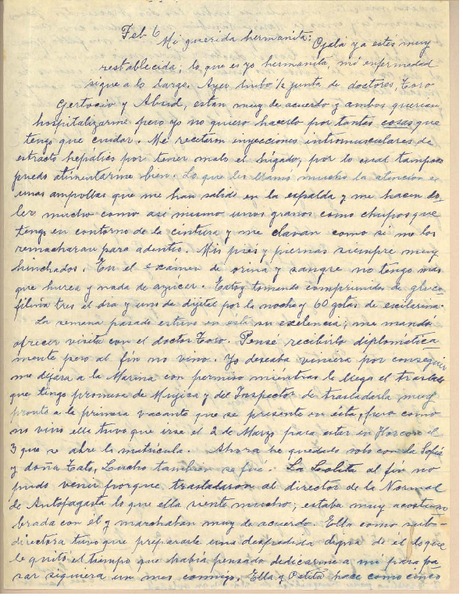 Feb 6
Mi querida hermanita: Ojalá ya estes muy
restablecida, lo que es yo hermanita, mi enfermedad
sigue a lo largo. Ayer hubo ½ junta de doctores, Toro
Gertosio y Abud, están muy de acuerdo y ambos querían
hospitalizarme pero yo no quiero hacerlo por tantas cosas que
tengo que cuidar. Me recetaron inyecciones intramusculares de
extracto hepático por tener malo el higado, por lo cual tampoco
puedo alimentarme bien. Lo que les llamó mucho la atención es
unas ampollas que me han salido en la espalda y me hacen do-
ler mucho como asi mismo unos granos como chupos que
tengo en contorno de la cintura y me clavan como si me los
remacharan para adentro. Mis pies y piernas siempre muy
hinchados. En el exámen de orina y sangre no tengo más
que hurea y nada de azucar. Estoy tomando comprimidos de gluco
filina tres al dia y uno de digital por la noche y 60 gotas de
La semana pasada estuvo en ésta su exelencia, me mandó
ofrecer visita con el doctor Toro. Pensé recibirlo diplomatica
mente pero al fin no vino. Yo deseaba viniera por conseguir
me dejara a la Marina con permiso mientras le llega el traslado
que tengo promesa de Mujica y del Inspector de trasladarla muy
pronto a la primera vacante que se presente en ésta, pero como
no vino ella tuvo que irse el 2 de Marzo para estar en
3 que se abre la matrícula. Ahora he quedado solo con la Sofia
y doña Tato, Lucho tambien se fué. La Lolita al fin no
pudo venir porque trasladaron al director de la Normal
de Antofagasta lo que ella siente mucho, estaba muy acostum
brada con él y marchaban muy de acuerdo. Ella como sub-
directora tuvo que prepararle una despedida digna de él lo que
le quitó el tiempo que había pensado dedicarme a mi para pa-
sar siquiera un mes conmigo. Ella y hace como cinco